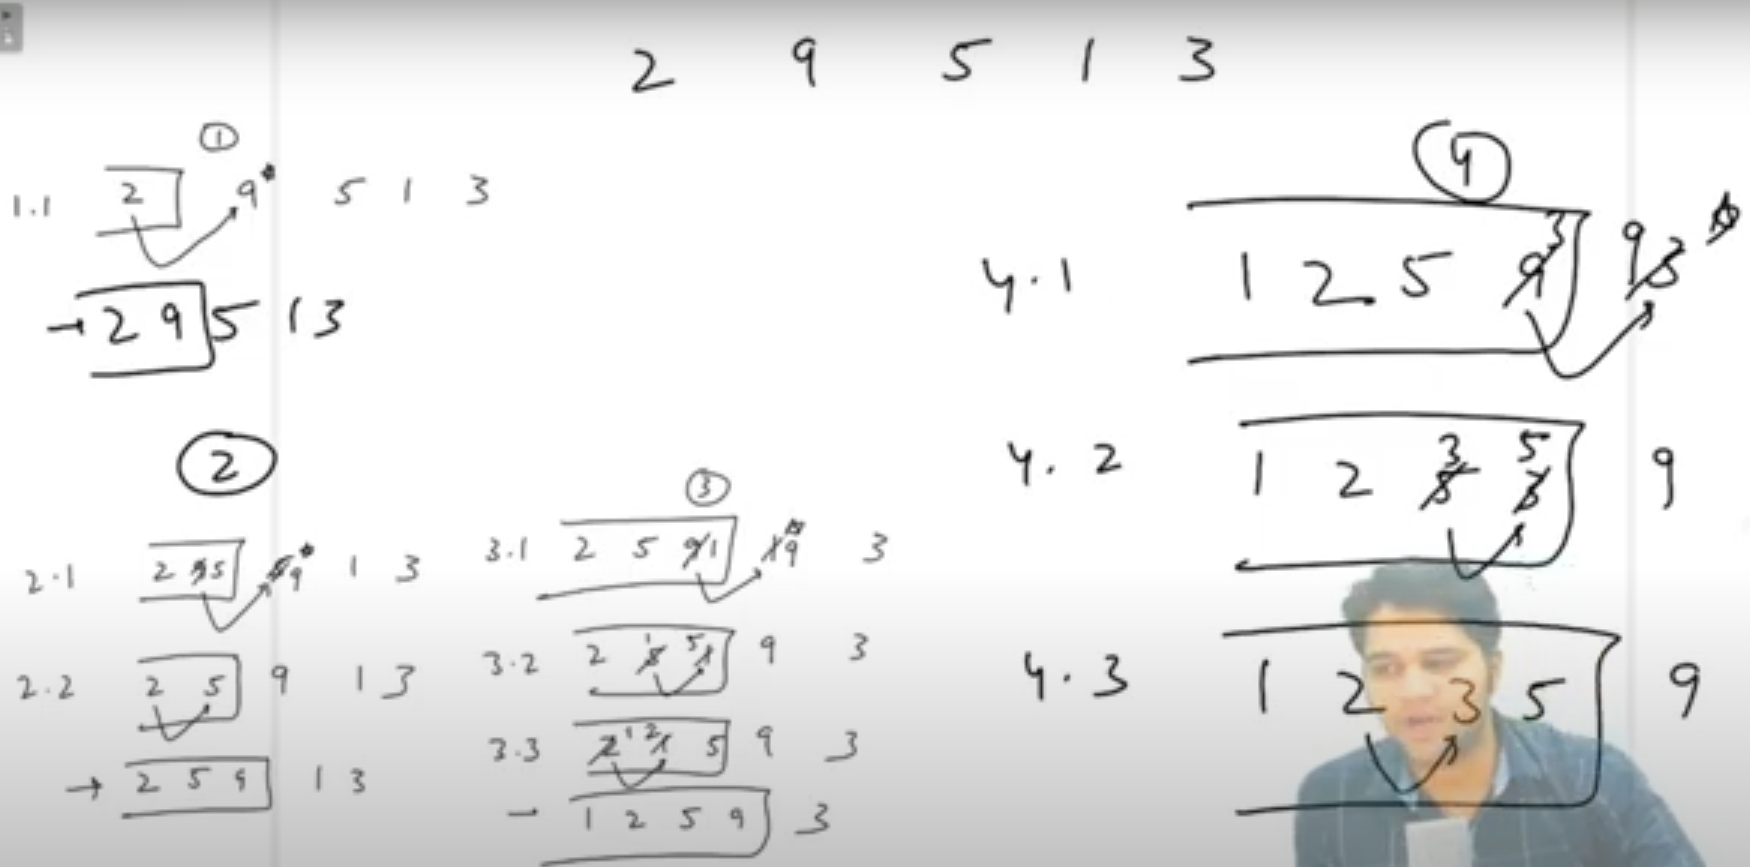 2 9 5 1 3
1
1.1 2 9* 5 1 3
→ 2 9 5 1 3
2
2.1 2 9 5 5 9* 1 3
2.2 2 5 9 1 3
→ 2 5 9 1 3
3
3.1 2 5 9 1 1 9* 3
3.2 2 5 1 1 5 9 3
3.3 2 1 1 2 5 9 3
→ 1 2 5 9 3
4
4.1 1 2 5 9 3 3 9*
4.2 1 2 5 3 3 5 9
4.3 1 2 3 5 9